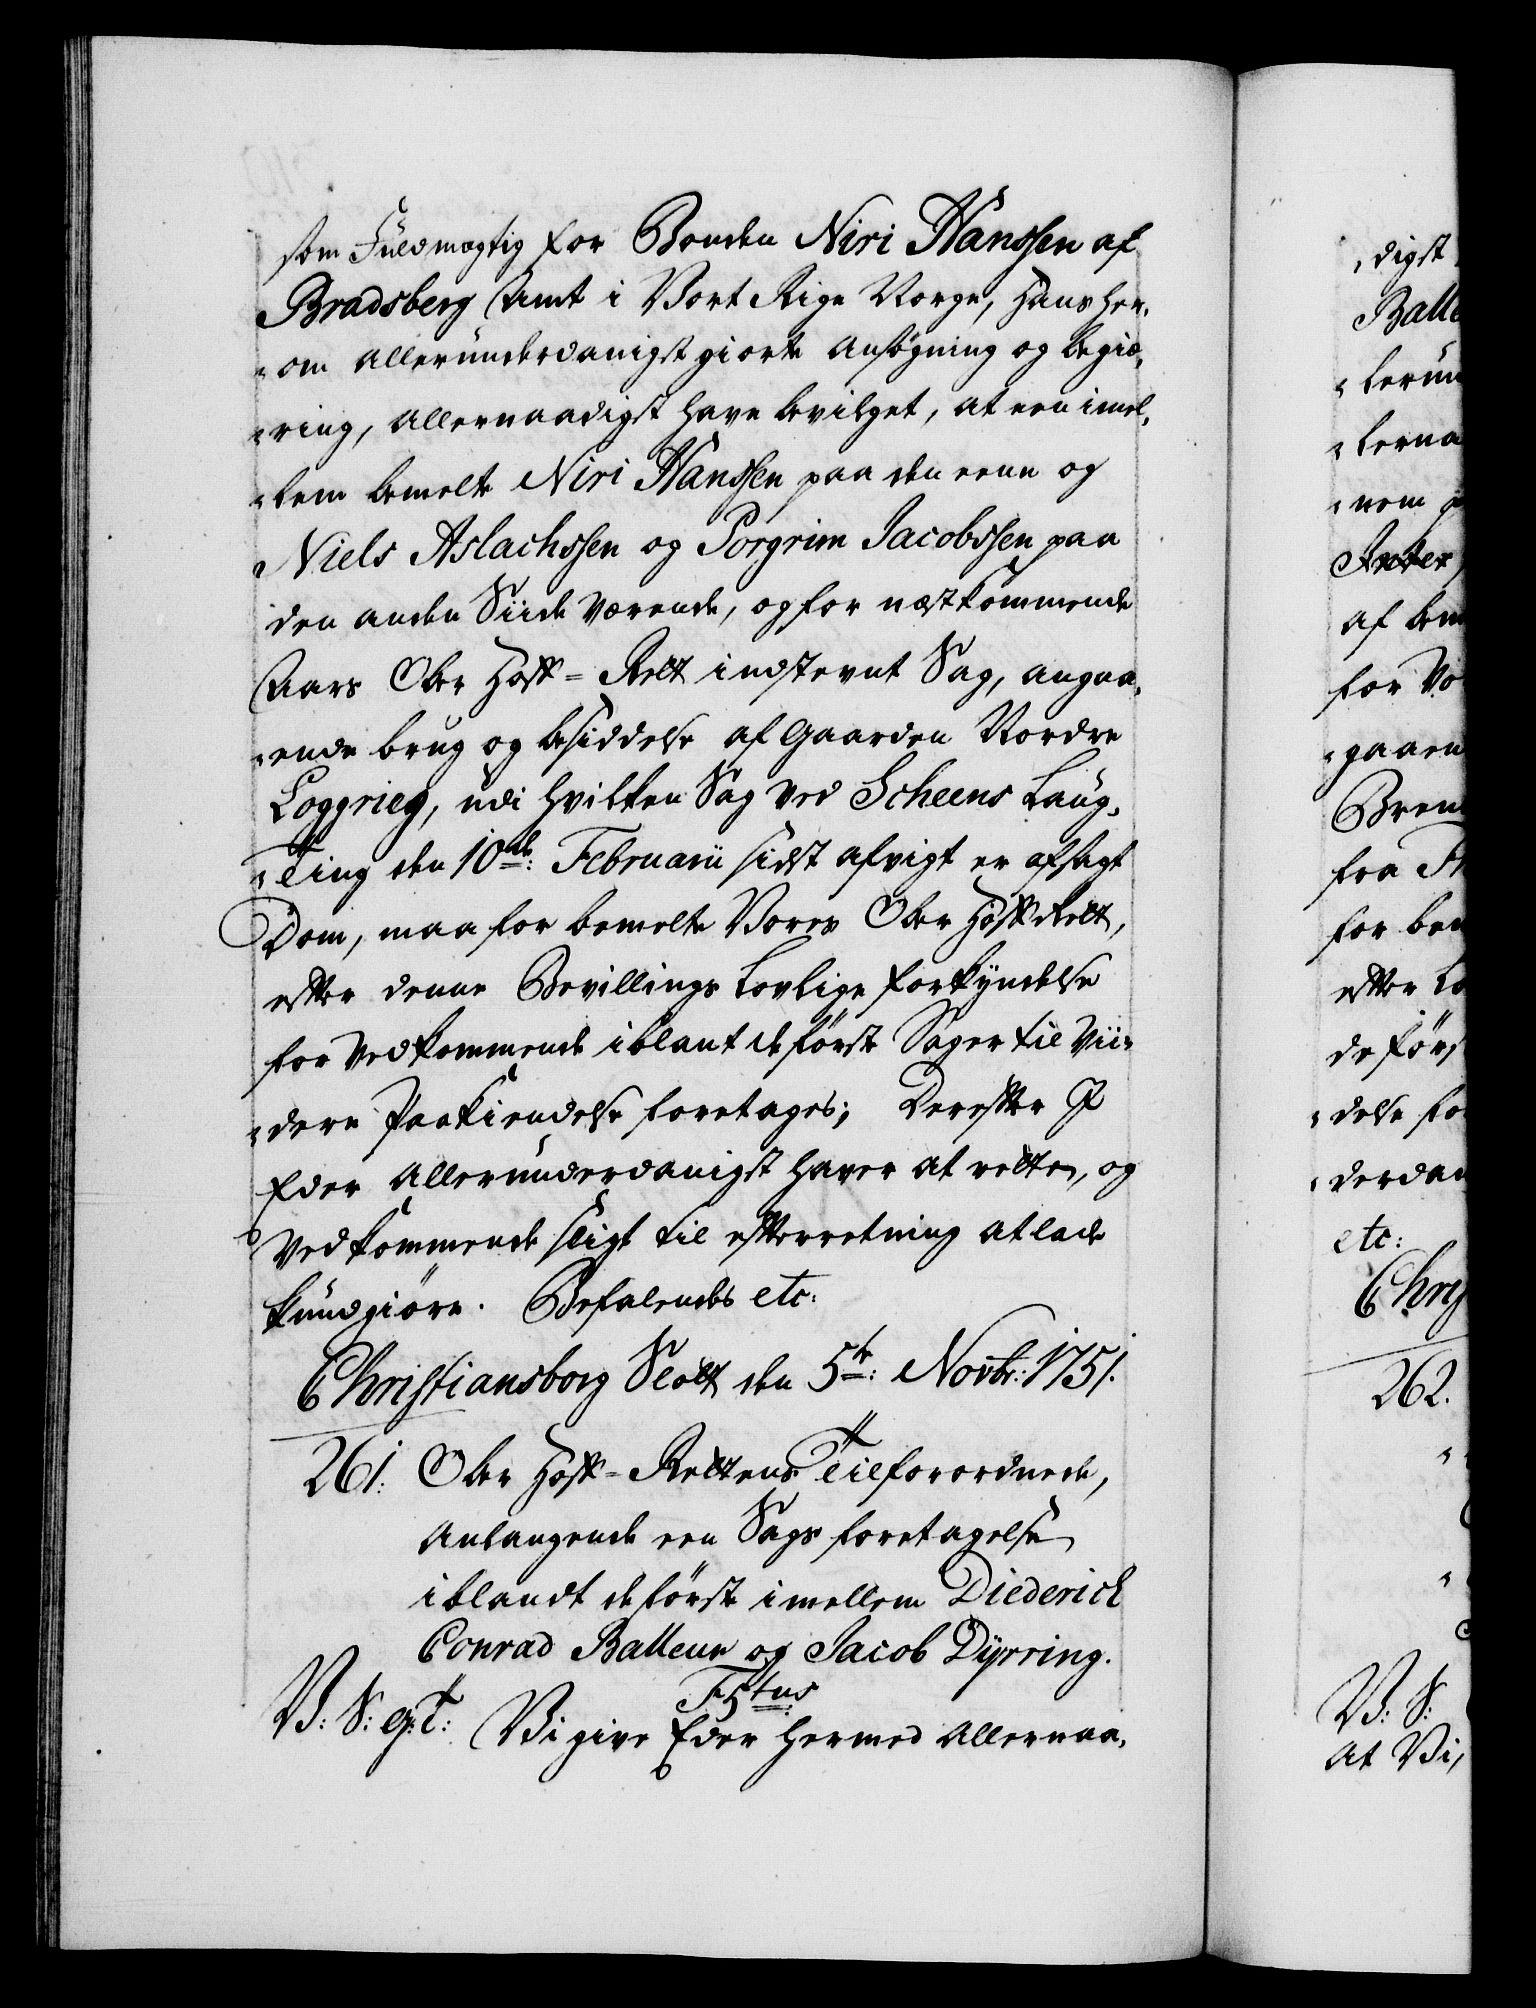 som Fuldmægtig for Bonden Niri Hanssen af
Bradsberg Amt i Vort Rige Norge, hans her,
„om allerunderdanigst giorte Ansøgning og begiæ,
„ring, allernaadigst have bevilget, at een imel,
„lem bemelte Niri Hanssen paa den eene og
Niels Aslachssen og Porgrim Jacobssen paa
den anden Siide værende, og for næstkommende
Aars Ober Hoff=Rett indstevnt Sag, angaa,
„ende brug og besiddelse af Gaarden Nordre
Loggrieg, udi hvilken Sag ved Scheens Laug,
„Ting den 10de: Februarii sidst afvigt er afsagt
Dom, maa for bemelte Vores Ober Hoff Rett,
efter denne Bevillings lovlige forkyndelse
for Vedkommende iblant de første Sager til vii,
„dere Paakiendelse foretages; Derefter I
Eder allerunderdanigst haver at rette, og
Vedkommende sligt til efterretning at lade
kundgiøre. Befalendes etc:
Christiansborg Slott den 5te: Novbr: 1751.
261. Ober Hoff=Rettens Tilforordnede,
Anlangende een Sags foretagelse
iblandt de første imellem Diederich
Conrad Balleur og Jacob Dyrring.
F 5tus
V: S: g: T: Vi give Eder hermed allernaa,
„digst
Balle
„lerun
„lerna
„nem
Inter
af bem
for Vo
„gaaen
Bren
fra
for bem
efter Lo
de førs
„delse fo
„derdan
etc:
Chris
262.
V: S:
At Vi,